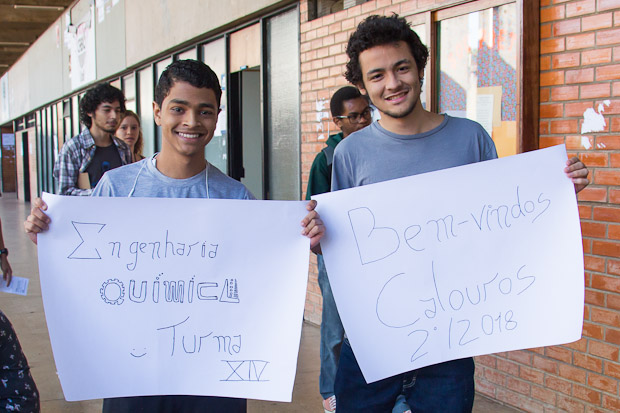 Σngenharia
QUÍMICA
Turma
XIV
Bem-vindos
Calouros
2º/2018